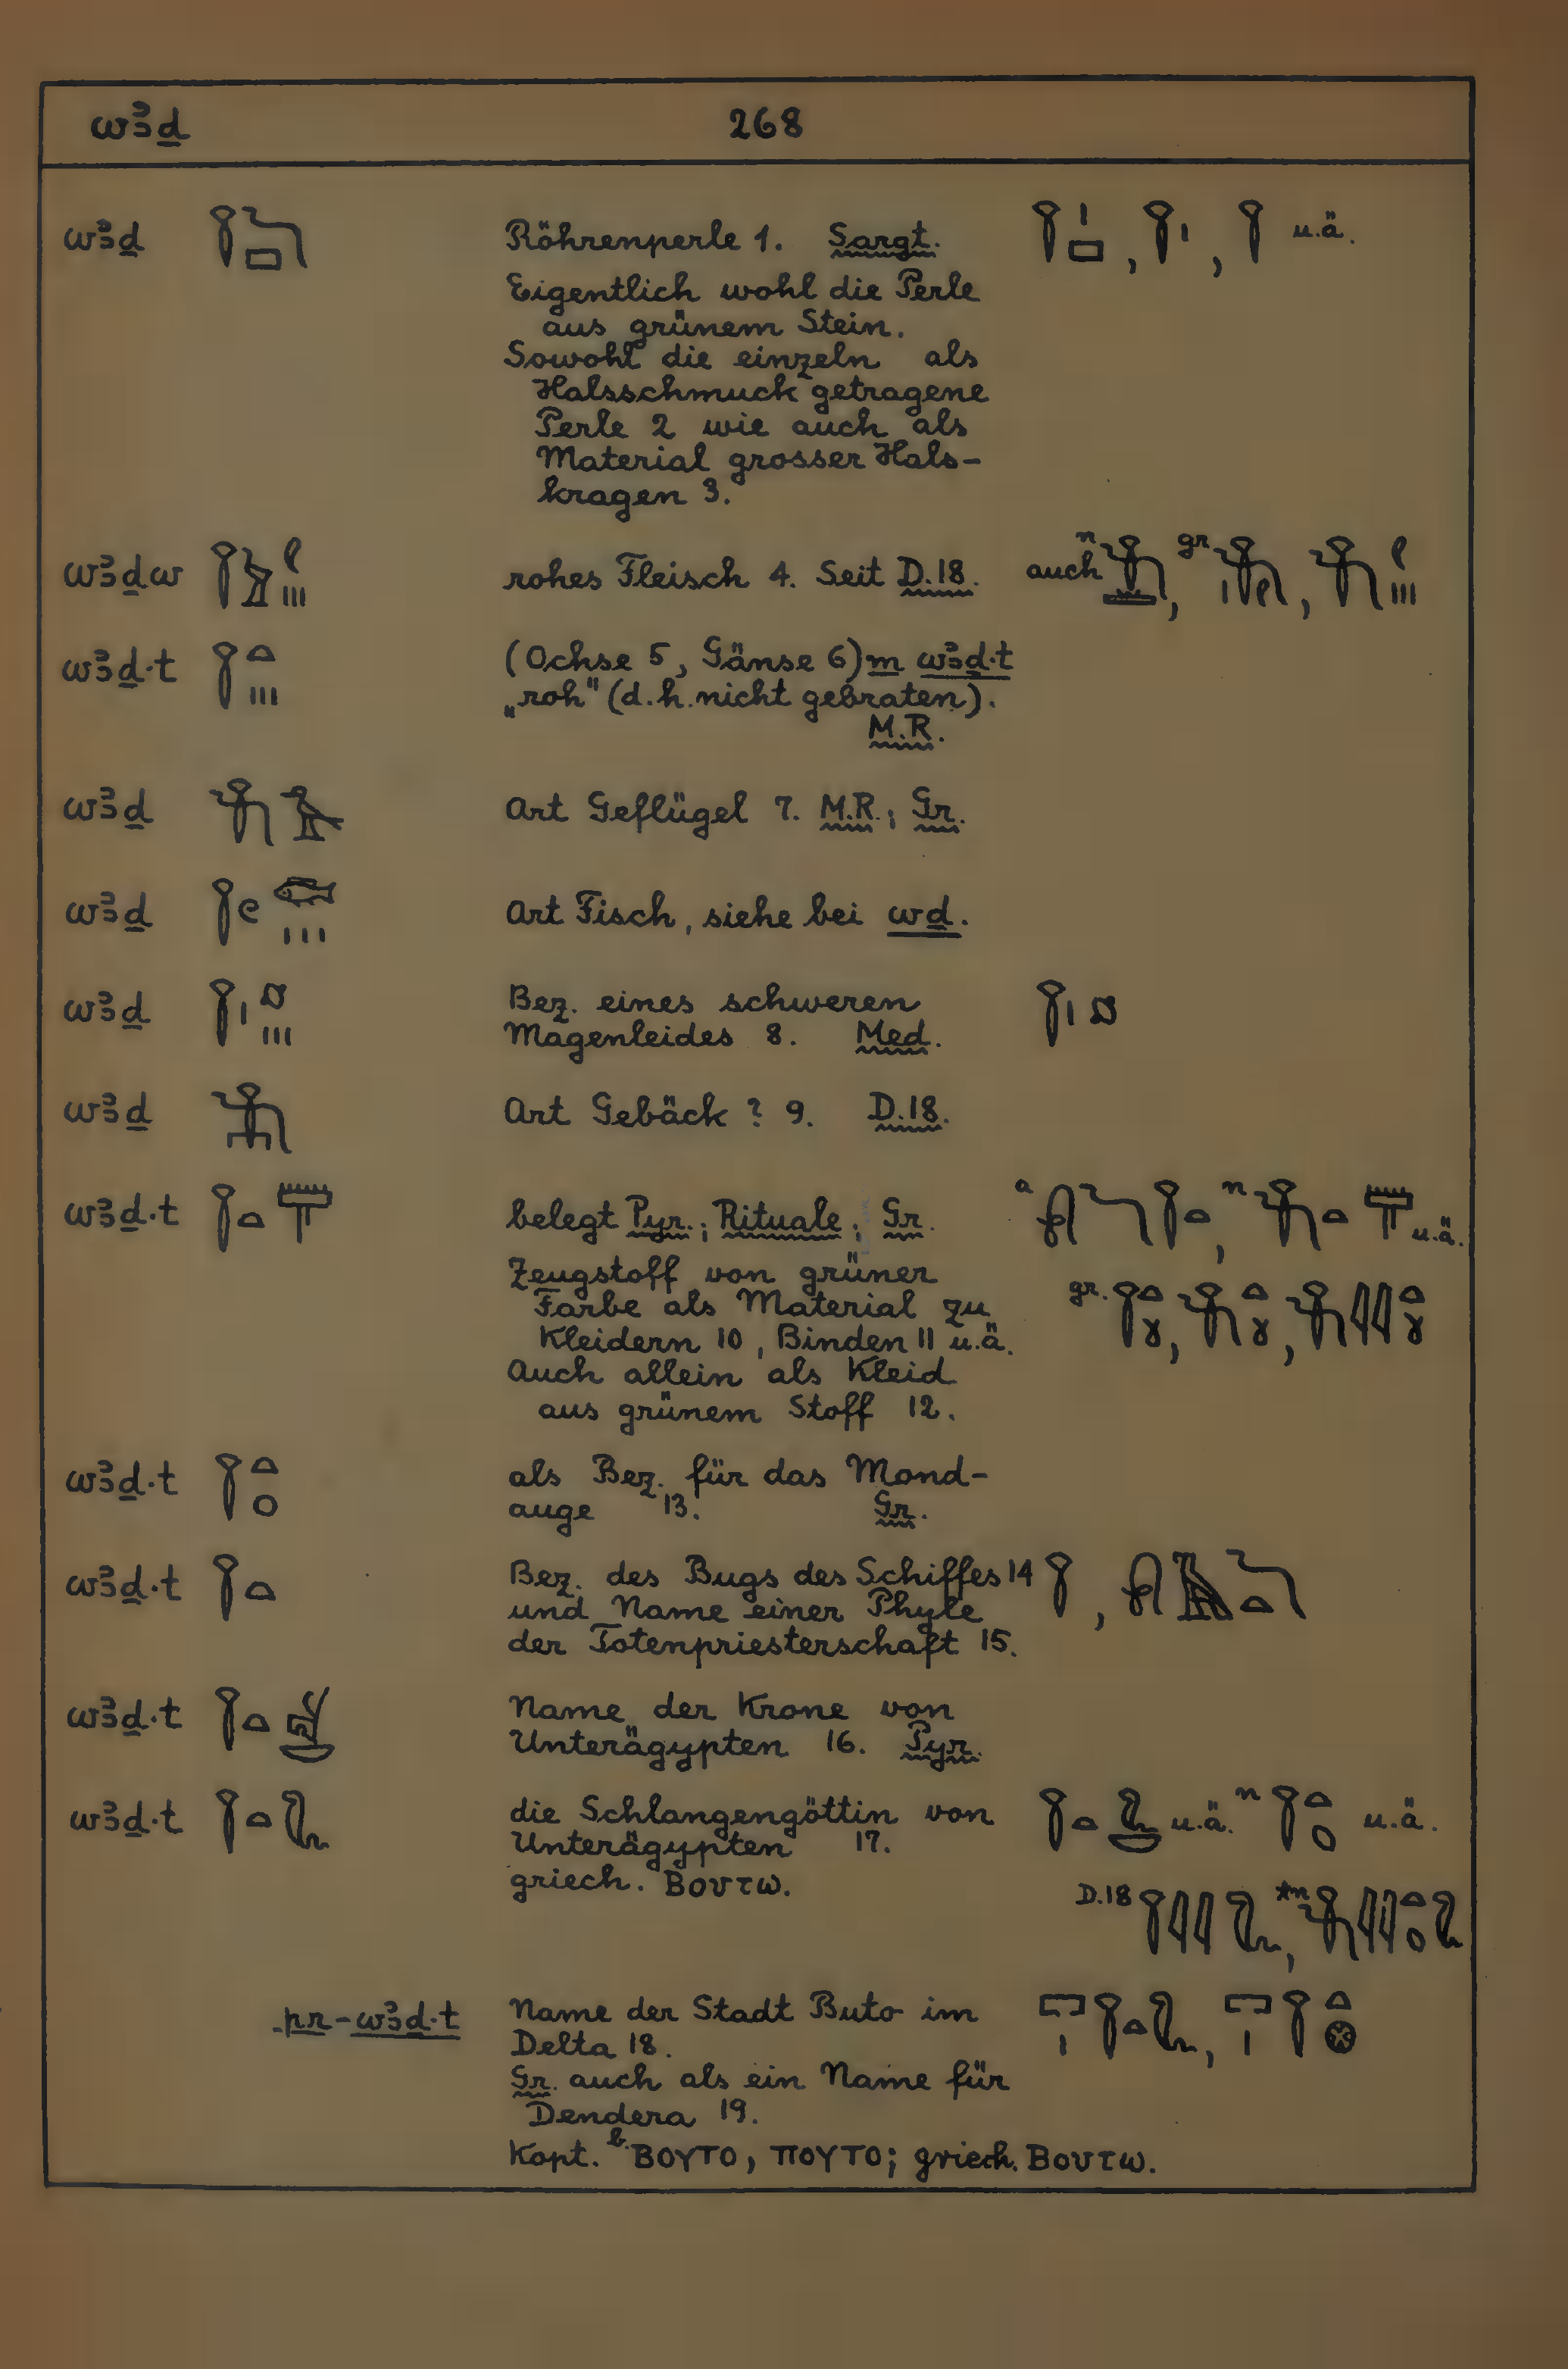 wꜣḏ 268
wꜣḏ Röhrenperle 1. Sargt. u.ä.
Eigentlich wohl die Perle
aus grünem Stein.
Sowohl die einzeln als
Halsschmuck getragene
Perle 2 wie auch als
Material grosser Hals-
kragen 3.
wꜣḏw rohes Fleisch 4. Seit D.18. auch n , gr ,
wꜣḏ·t (Ochse 5, Gänse 6) m wꜣḏ·t
„roh" (d.h. nicht gebraten).
M.R.
wꜣḏ Art Geflügel 7. M.R.; Gr.
wꜣḏ Art Fisch, siehe bei wḏ.
wꜣḏ Bez. eines schweren
Magenleides 8. Med.
wꜣḏ Art Gebäck ? 9. D.18.
wꜣḏ·t belegt Pyr.; Rituale; Gr. a , n u.ä.
Zeugstoff von grüner
Farbe als Material zu gr.
Kleidern 10, Binden 11 u.ä.
Auch allein als Kleid
aus grünem Stoff 12.
wꜣḏ·t als Bez. für das Mond-
auge 13. Gr.
wꜣḏ·t Bez. des Bugs des Schiffes 14
und Name einer Phyle
der Totenpriesterschaft 15.
wꜣḏ·t Name der Krone von
Unterägypten 16. Pyr.
wꜣḏ·t die Schlangengöttin von u.ä. n u.ä.
Unterägypten 17.
griech. Βουτω. D.18
pr-wꜣḏ·t Name der Stadt Buto im
Delta 18.
Gr. auch als ein Name für
Dendera 19.
Kopt. b. ⲃⲟⲩⲧⲟ, ⲡⲟⲩⲧⲟ; griech. Βουτω.